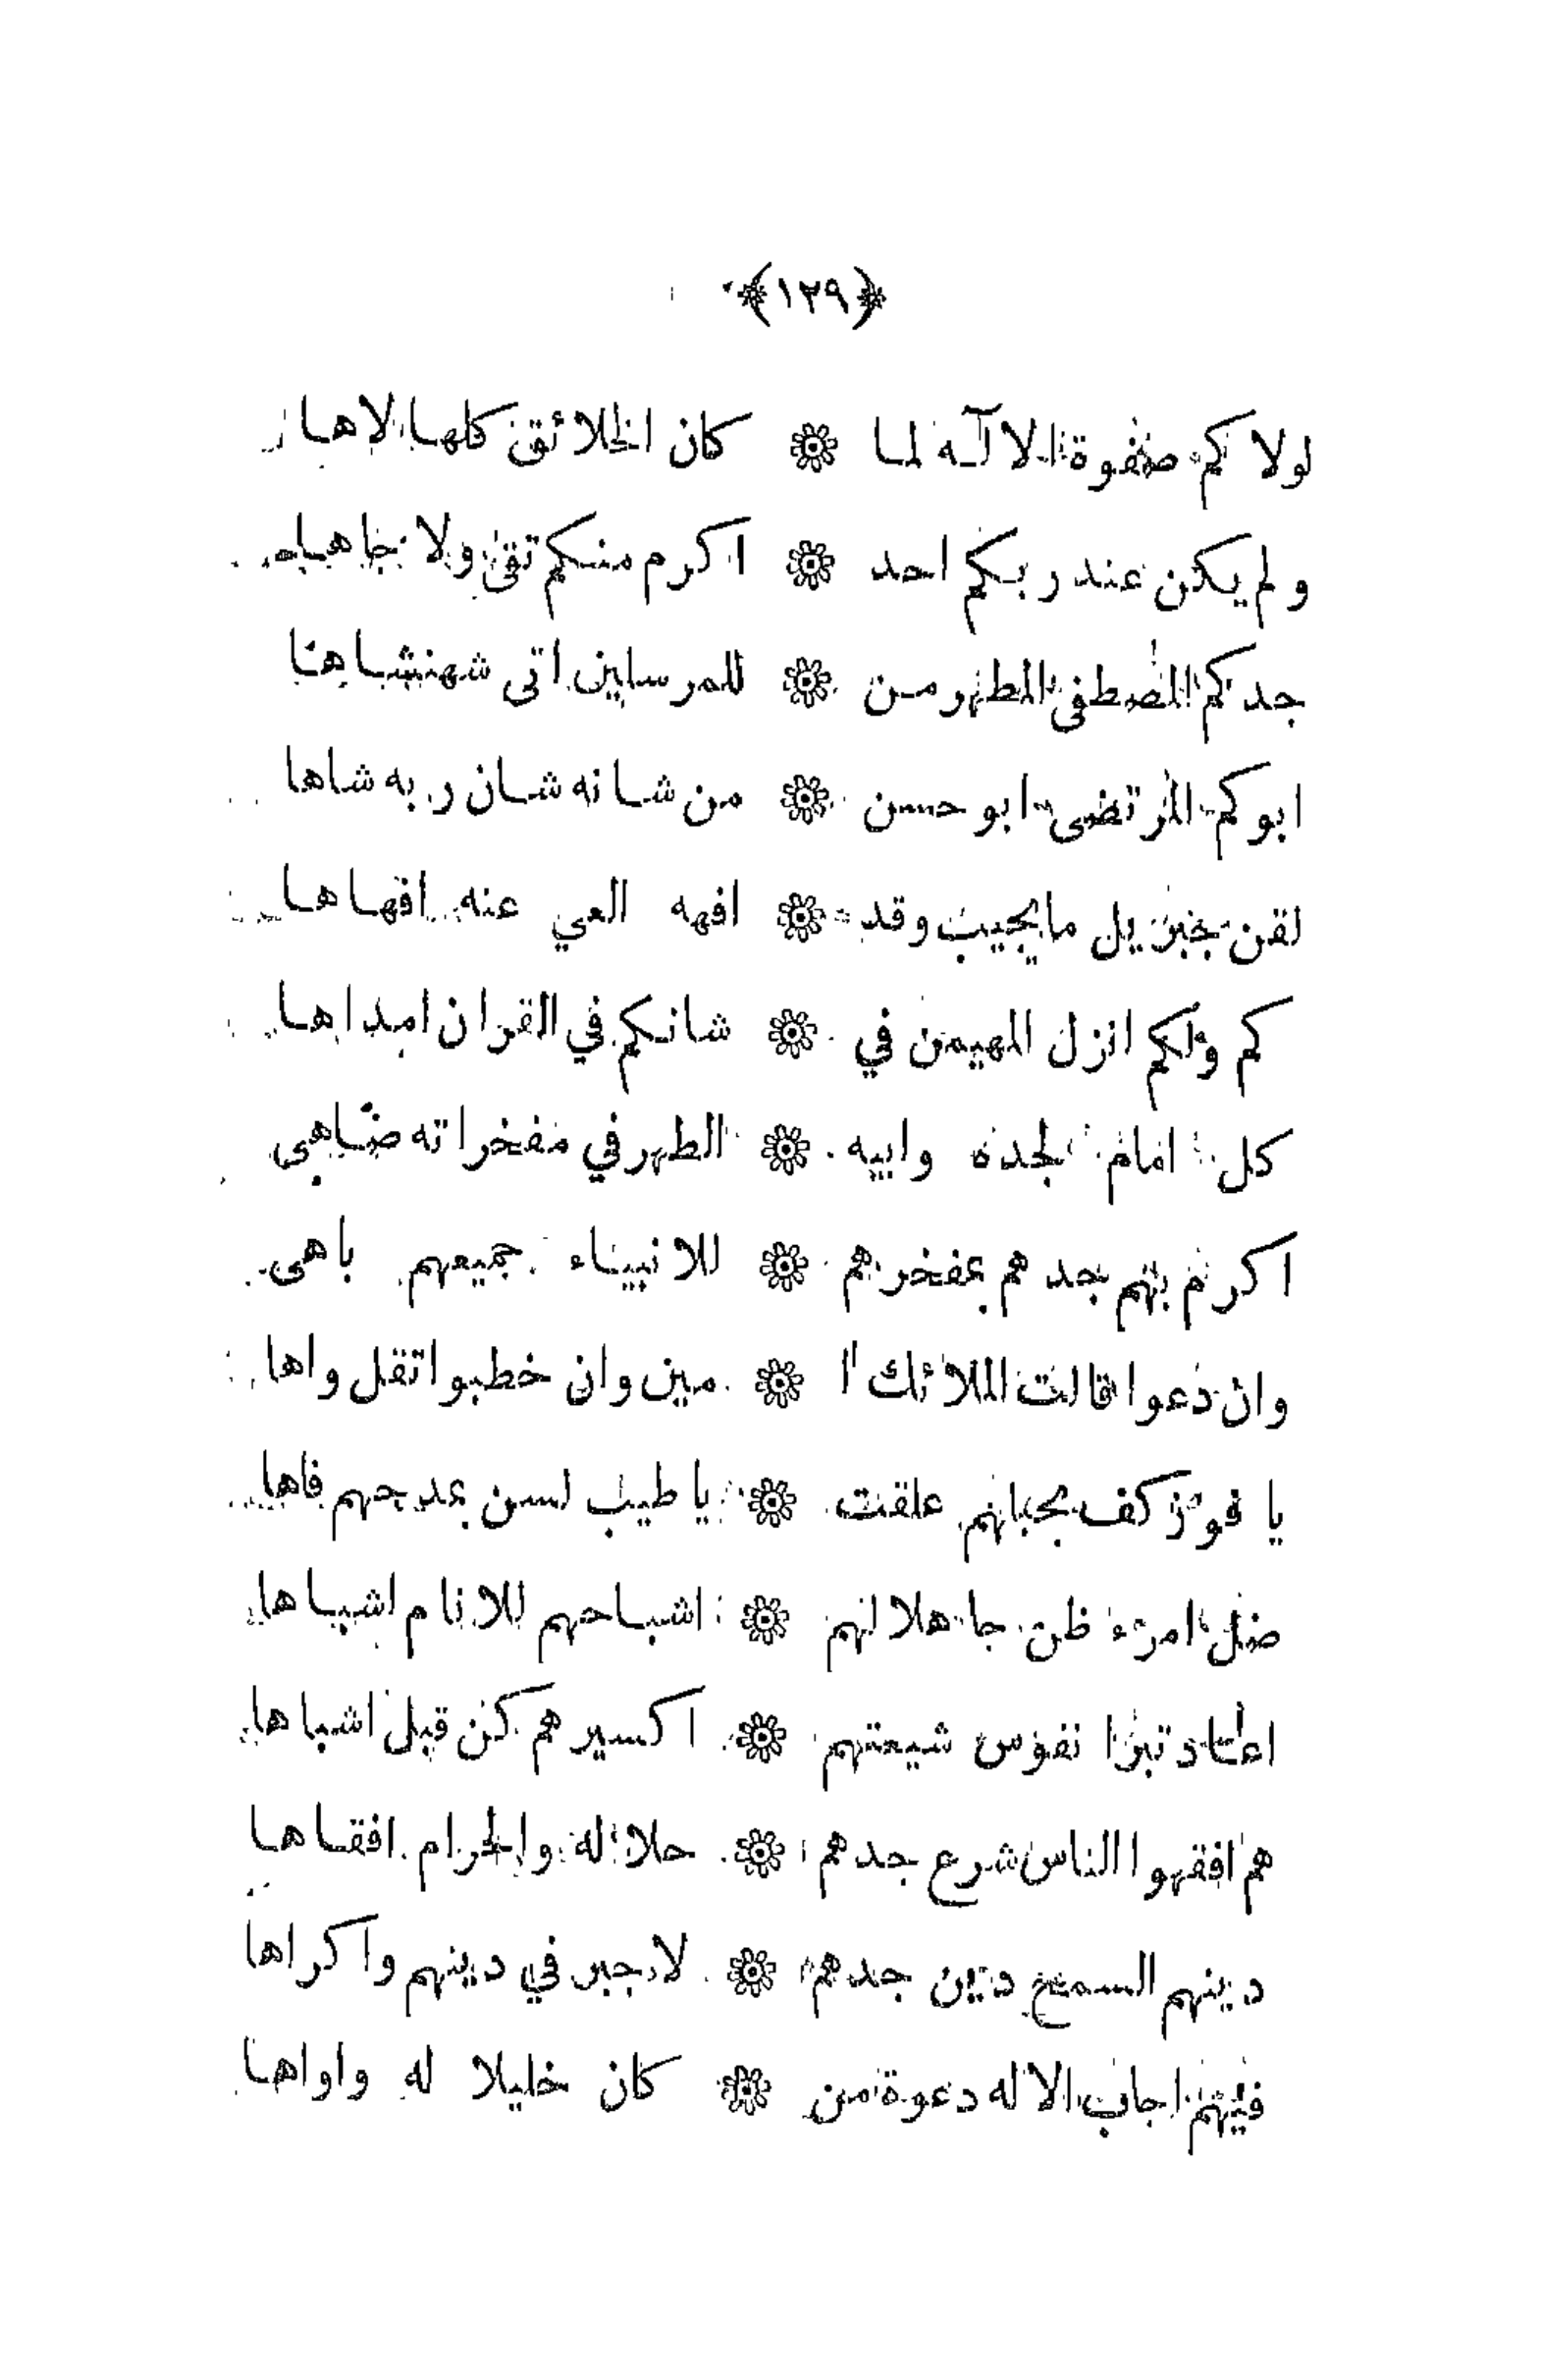 ﴿١٢٩﴾
لولاكم صفوة الاآـه لما ۞ كان الخلائق كلها لاها
ولم يكن عند ربكم احد ۞ اكرم منكم تقى ولا جاها
جدكم المصطفى المطهر من ۞ للمرسلين اتى شهنشاها
ابوكم المرتضى ابو حسن ۞ من شانه شان ربه شاها
لقن جبريل ما يجيب وقد ۞ افهه العي عنه افهاها
كم ولكم انزل المهيمن في ۞ شانكم في القران امداها
كل امام لجده وابيه ۞ الطهر في مفخراته ضاهى
اكرم بهم جدهم بمفخرهم ۞ للانبياء جميعهم باهى
وان دعوا قالت الملائك ا ۞ مين وان خطبوا تقل واها
يا فوز كف بحبلهم علقت ۞ يا طيب لسن بمدحهم فاها
ضل امرء ظن جاهلا انهم ۞ اشباحهم للانام اشباها
اعاد تبرا نفوس شيعتهم ۞ اكسيرهم كن قبل اشباها
هم افقهوا الناس شرع جدهم ۞ حلاله والحرام افقاها
دينهم السمح دين جدهم ۞ لا جبر في دينهم واكراها
فيهم اجاب الاله دعوة من ۞ كان خليلا له واواها